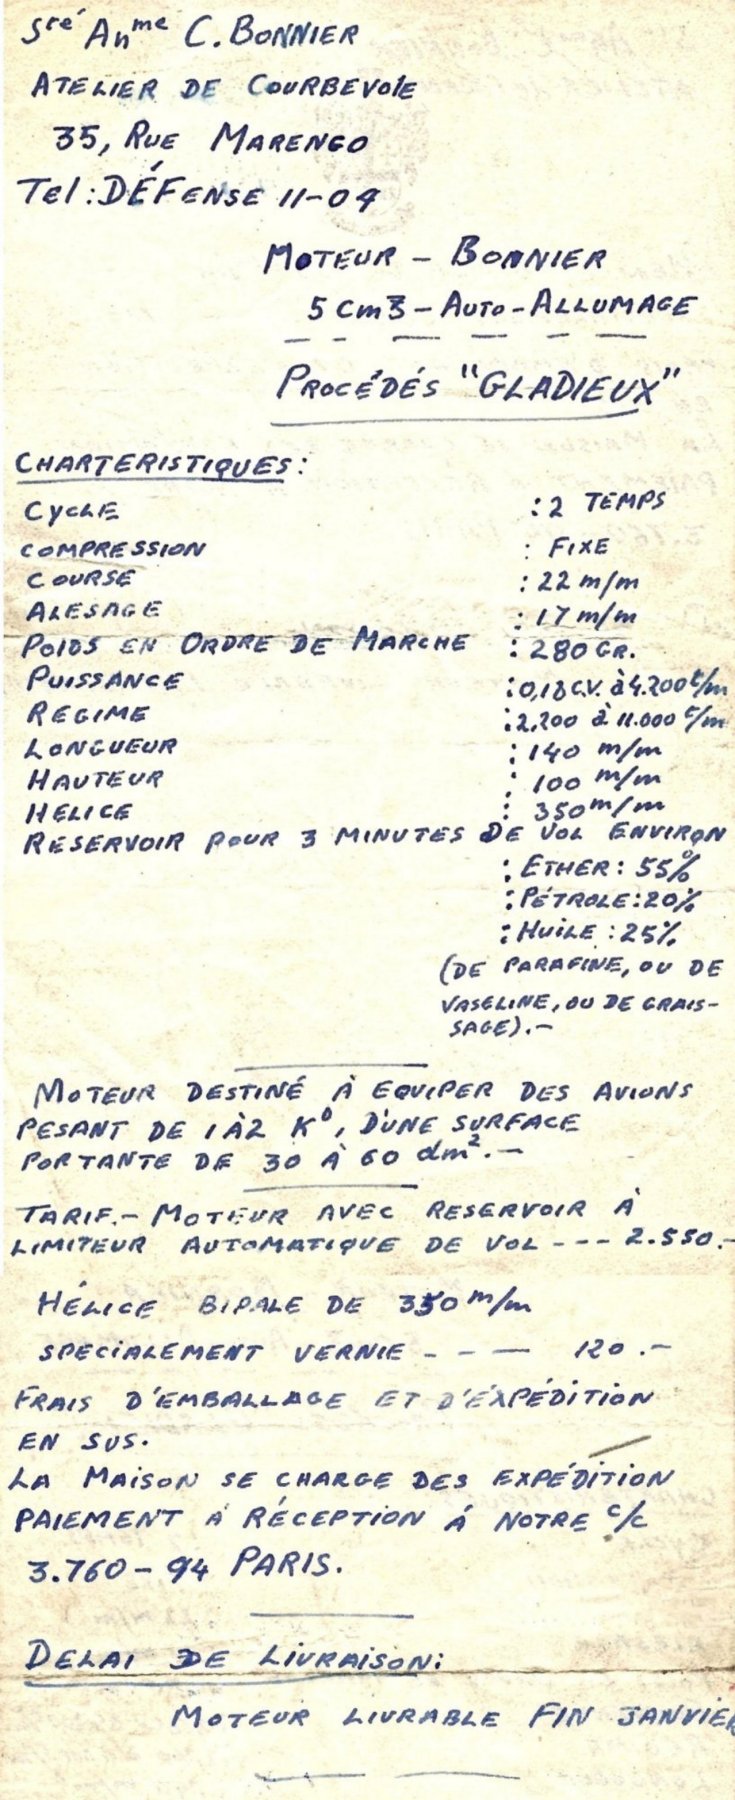 Sté Anme C. BONNIER
ATELIER DE COURBEVOIE
35, RUE MARENGO
Tel : DÉFENSE 11-04
MOTEUR - BONNIER
5 cm3 - AUTO-ALLUMAGE
PROCÉDÉS "GLADIEUX"
CHARTERISTIQUES :
CYCLE : 2 TEMPS
COMPRESSION : FIXE
COURSE : 22 m/m
ALESAGE : 17 m/m
POIDS EN ORDRE DE MARCHE : 280 GR.
PUISSANCE : 0,18 C.V. à 4.200 t/m
REGIME : 2.200 à 11.000 t/m
LONGUEUR : 140 m/m
HAUTEUR : 100 m/m
HELICE : 350 m/m
RESERVOIR POUR 3 MINUTES DE VOL ENVIRON
: ETHER : 55%
: PÉTROLE : 20%
: HUILE : 25%
(DE PARAFINE, OU DE
VASELINE, OU DE GRAIS-
SAGE).-
MOTEUR DESTINÉ À EQUIPER DES AVIONS
PESANT DE 1 À 2 K°, D'UNE SURFACE
PORTANTE DE 30 À 60 dm².-
TARIF.- MOTEUR AVEC RESERVOIR À
LIMITEUR AUTOMATIQUE DE VOL --- 2.550.-
HÉLICE BIPALE DE 350 m/m
SPECIALEMENT VERNIE - - — 120.-
FRAIS D'EMBALLAGE ET D'ÉXPÉDITION
EN SUS.
LA MAISON SE CHARGE DES EXPÉDITION
PAIEMENT À RÉCEPTION À NOTRE c/c
3.760-94 PARIS.
DELAI DE LIVRAISON :
MOTEUR LIVRABLE FIN JANVIER